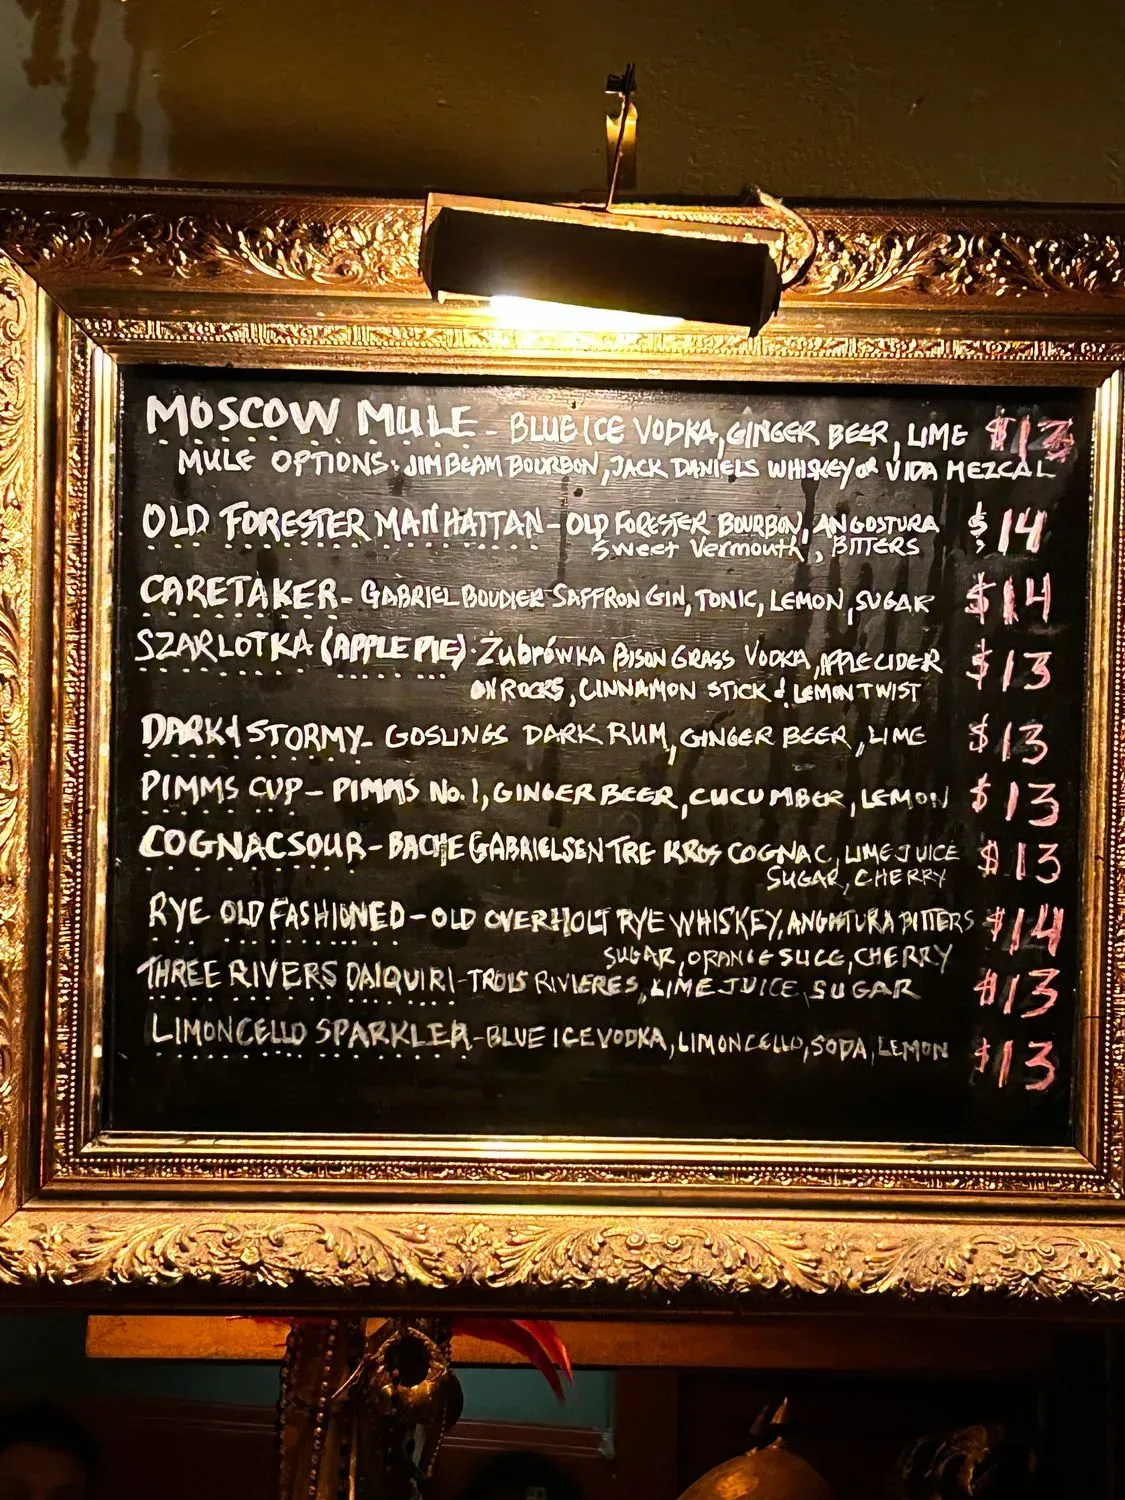 MOSCOW MULE - BLUE ICE VODKA, GINGER BEER, LIME $13
MULE OPTIONS: JIM BEAM BOURBON, JACK DANIELS WHISKEY or VIDA MEZCAL
OLD FORESTER MANHATTAN - OLD FORESTER BOURBON, ANGOSTURA $14
Sweet Vermouth, BITTERS
CARETAKER - GABRIEL BOUDIER SAFFRON GIN, TONIC, LEMON, SUGAR $14
SZARLOTKA (APPLE PIE) · Żubrówka BISON GRASS VODKA, APPLE CIDER $13
ON ROCKS, CINNAMON STICK & LEMON TWIST
DARK & STORMY - GOSLINGS DARK RUM, GINGER BEER, LIME $13
PIMMS CUP - PIMMS No. 1, GINGER BEER, CUCUMBER, LEMON $13
COGNAC SOUR - BACHE GABRIELSEN TRE KROS COGNAC, LIME JUICE $13
SUGAR, CHERRY
RYE OLD FASHIONED - OLD OVERHOLT RYE WHISKEY, ANGOSTURA BITTERS $14
SUGAR, ORANGE SLICE, CHERRY
THREE RIVERS DAIQUIRI - TROIS RIVIERES, LIME JUICE, SUGAR $13
LIMONCELLO SPARKLER - BLUE ICE VODKA, LIMONCELLO, SODA, LEMON $13